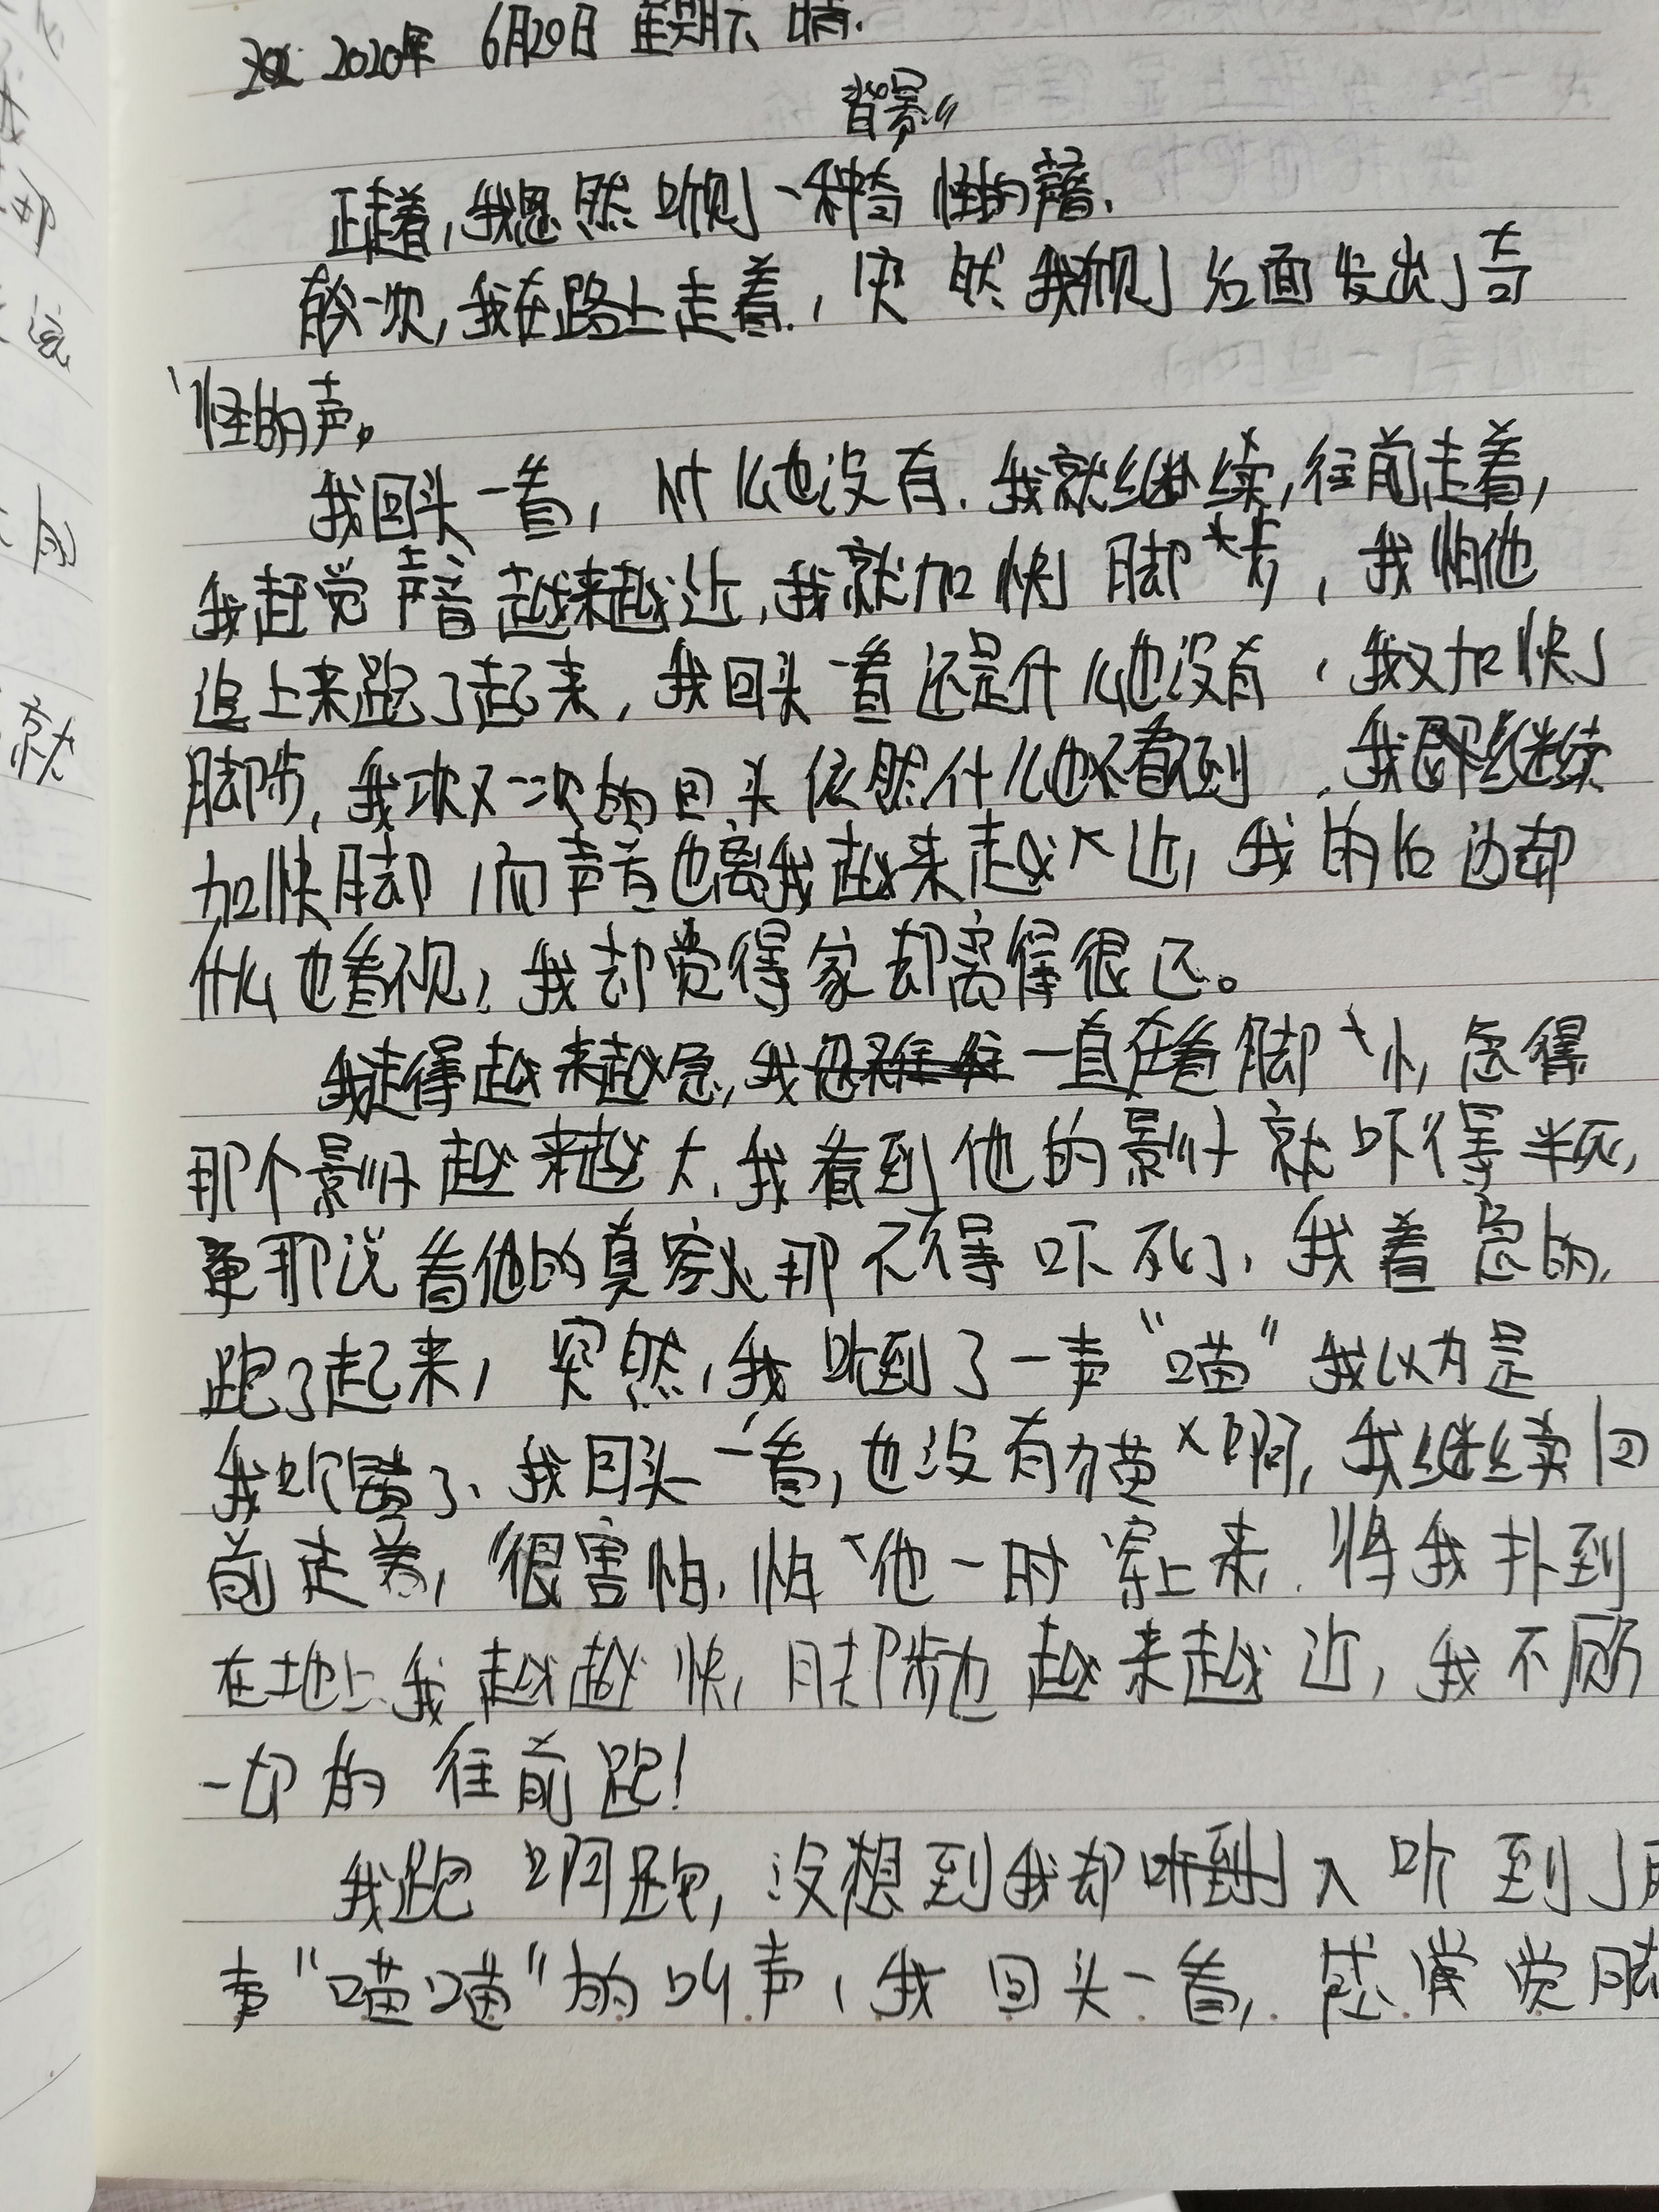 2020年 6月20日 星期六 晴.
背景
正走着,我忽然听见一种奇怪的声音.
有一次,我在路上走着.,突然我听见了后面发出了奇
怪的声。
我回头一看,什么也没有.我就继续,往前走着,
我赶觉声音越来越近,我就加快了脚步,我怕他
追上来跑了起来,我回头一看还是什么也没有,我又加快了
脚步,我一次又一次的回头依然什么也不看到.我继续
加快脚,而声音也离我越来越近,我的后边却
什么也看不见,我却觉得家却离得很远。
我走得越来越急,我一直在看脚下,急得
那个影子越来越大.我看到他的影子就吓得半死,
更那说看他的真容,那不得吓死了,我着急的,
跑了起来,突然,我听到了一声“喵”我以为是
我听错了、我回头一看,也没有猫啊,我继续向
前走着,很害怕.怕他一时窜上来.将我扑到
在地上我越越快,脚步也越来越近,我不顾
一切的往前跑!
我跑啊跑,没想到我却又听到了
声“喵喵”的叫声,我回头一看,感觉脚